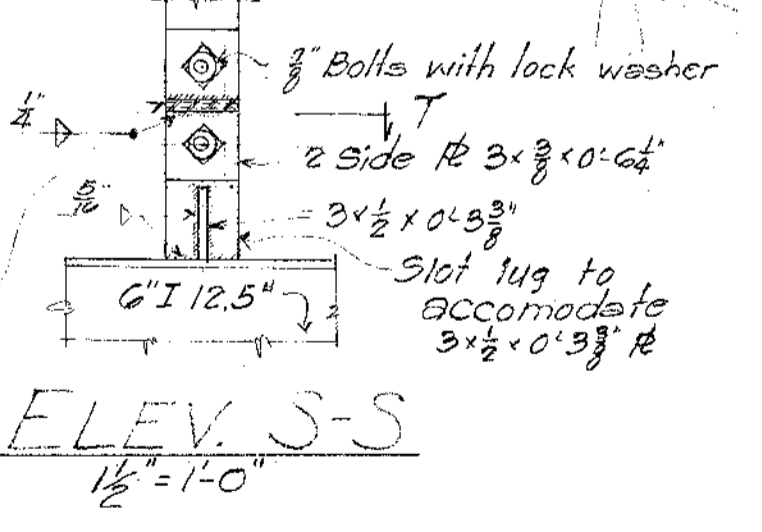 7/8" Bolts with lock washer
1/4"
T
2 Side ℞ 3 x 3/8 x 0'-6 1/4"
5/16
3 x 1/2 x 0'-3 3/8"
Slot lug to
accomodate
3 x 1/2 x 0'-3 3/8" ℞
6" I 12.5#
2
ELEV. S-S
1 1/2" = 1'-0"